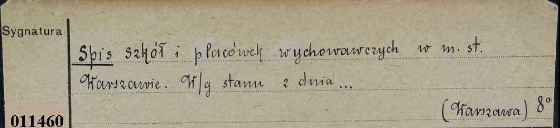 Sygnatura
Spis szkół i placówek wychowawczych w m. st.
Warszawie. W/g stanu z dnia ...
(Warszawa) 8°
011460